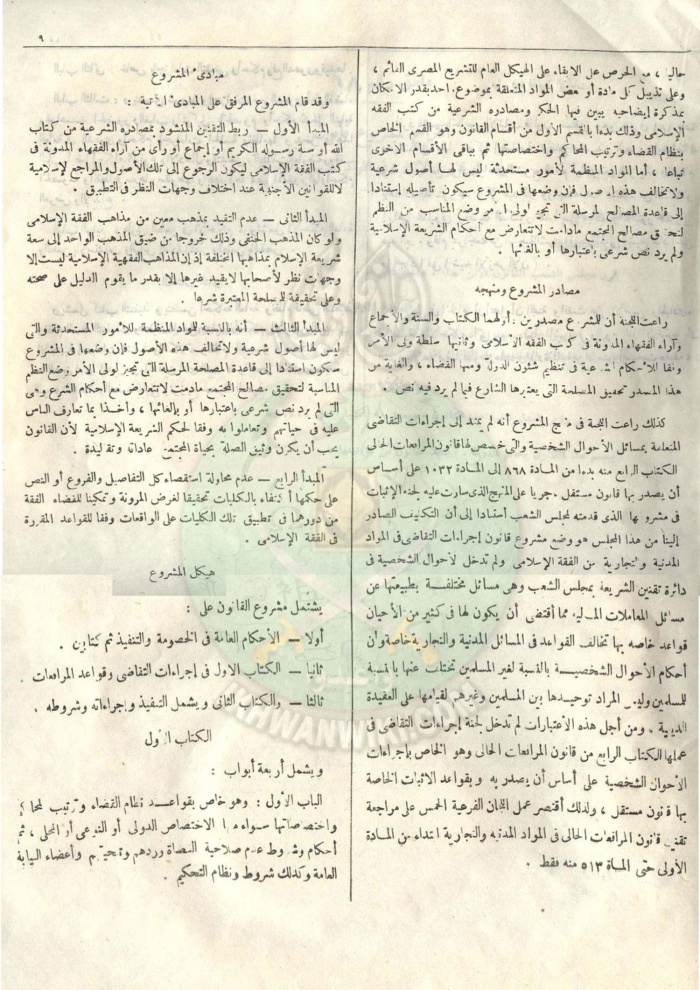 ٩
حاليا ، مع الحرص على الابقاء على الهيكل العام للتشريع المصرى القائم ،
وعلى تذييل كل مادة أو بعض المواد المتعلقة بموضوع واحد بقدر الامكان
بمذكرة إيضاحية يبين فيها الحكم ومصادره الشرعية من كتب الفقه
الإسلامى وذلك بدءا بالقسم الأول من أقسام القانون وهو القسم الخاص
بنظام القضاء وترتيب المحاكم واختصاصاتها ثم بباقى الأقسام الأخرى
تباعا . أما المواد المنظمة لأمور مستحدثة ليس لها أصول شرعية
ولا تخالف هذه الأصول فإن وضعها فى المشروع سيكون تأصيله إستنادا
إلى قاعدة المصالح المرسلة التى تجيز لولى الأمر وضع المناسب من النظم
لتحقيق مصالح المجتمع مادامت لا تتعارض مع أحكام الشريعة الإسلامية
ولم يرد نص شرعى باعتبارها أو بالغائها .
مصادر المشروع ومنهجه
راعت اللجنة أن للمشروع مصدرين . أولهما الكتاب والسنة والأجماع
وآراء الفقهاء المدونة فى كتب الفقه الأسلامى وثانيها سلطة ولى الأمر
وفقا للأحكام الشرعية فى تنظيم شئون الدولة ومنها القضاء ، والغاية من
هذا المصدر تحقيق المصلحة التى يعتبرها الشارع فيما لم يرد فيه نص .
كذلك راعت اللجنة فى منهج المشروع أنه لم يمتد إلى إجراءات التقاضى
المتعلقة بمسائل الأحوال الشخصية والتى خصص لها قانون المرافعات الحالى
الكتاب الرابع منه بدءا من المادة ٨٦٨ إلى المادة ١٠٣٣ على أساس
أن يصدر بها قانون مستقل . جريا على المنهج الذى سارت عليه لجنة الإثبات
فى مشروعها الذى قدمته لمجلس الشعب أستنادا إلى أن التكليف الصادر
إلينا من هذا المجلس هو وضع مشروع قانون إجراءات التقاضى فى المواد
المدنية والتجارية من الفقه الإسلامى ولم تدخل الأحوال الشخصية فى
دائرة تقنين الشريعة بمجلس الشعب وهى مسائل مختلفة بطبيعتها عن
مسائل المعاملات المالية مما أقتضى أن يكون لها فى كثير من الأحيان
قواعد خاصه بها تخالف القواعد فى المسائل المدنية والتجارية خاصة وأن
أحكام الأحوال الشخصية بالنسبة لغير المسلمين تختلف عنها بالنسبة
للمسلمين وليس المراد توحيدها بين المسلمين وغيرهم لقيامها على العقيدة
الدينية . ومن أجل هذه الأعتبارات لم تدخل لجنة إجراءات التقاضى فى
عملها الكتاب الرابع من قانون المرافعات الحالى وهو الخاص بإجراءات
الأحوال الشخصية على أساس أن يصدر به وبقواعد الاثبات الخاصة
بها قانون مستقل ، ولذلك أقتصر عمل اللجان الفرعية الخمس على مراجعة
تقنين قانون المرافعات الحالى فى المواد المدنية والتجارية ابتداء من المادة
الأولى حتى المادة ٥١٣ منه فقط .
مبادئ المشروع
وقد قام المشروع المرفق على المبادئ الآتية :
المبدأ الأول — ربط التقنين المنشود بمصادره الشرعية من كتاب
الله أو سنة رسوله الكريم أو إجماع أو رأى من آراء الفقهاء المدونة فى
كتب الفقة الإسلامى ليكون الرجوع إلى تلك الأصول والمراجع الإسلامية
لا للقوانين الأجنبية عند اختلاف وجهات النظر فى التطبيق .
المبدأ الثانى — عدم التقيد بمذهب معين من مذاهب الفقة الإسلامى
ولو كان المذهب الحنفى وذلك خروجا من ضيق المذهب الواحد إلى سعة
شريعة الإسلام بمذاهبها المختلفة إذ إن المذاهب الفقهية الإسلامية ليست إلا
وجهات نظر لأصحابها لا يقيد غيرها إلا بقدر ما يقوم الدليل على صحته
وعلى تحقيقة للمصلحة المعتبرة شرعا .
المبدأ الثالث — أنه بالنسبة للمواد المنظمة للأمور المستحدثة والتى
ليس لها أصول شرعية ولا تخالف هذه الأصول فإن وضعها فى المشروع
سيكون استنادا إلى قاعدة المصلحة المرسلة التى تجيز لولى الأمر وضع النظم
المناسبة لتحقيق مصالح المجتمع مادامت لا تتعارض مع أحكام الشرع وهى
التى لم يرد نص شرعى باعتبارها أو بإلغائها ، وأخذا بما تعارف الناس
عليه فى حياتهم وتعاملوا به وفقا لحكم الشريعة الإسلامية لأن القانون
يجب أن يكون وثيق الصلة بحياة المجتمع وعاداته وتقاليدة .
المبدأ الرابع — عدم محاولة استقصاء كل التفاصيل والفروع أو النص
على حكمها أكتفاء بالكليات تحقيقا لغرض المرونة وتمكينا للقضاء الفقة
من دورهما فى تطبيق تلك الكليات على الواقعات وفقا للقواعد المقررة
فى الفقة الإسلامى .
هيكل المشروع
يشتمل مشروع القانون على :
أولا — الأحكام العامة فى الخصومة والتنفيذ ثم كتابين .
ثانيا — الكتاب الاول فى إجراءات التقاضى وقواعد المرافعات .
ثالثا — والكتاب الثانى ويشمل التنفيذ وإجراءاته وشروطه .
الكتاب الأول
ويشمل أربعة أبواب :
الباب الأول : وهو خاص بقواعد نظام القضاء وترتيب المحاكم
واختصاصاتها سواء منها الاختصاص الدولى أو النوعى أو المحلى ، ثم
أحكام وشروط عدم صلاحية القضاة وردهم وتنحيتهم وأعضاء النيابة
العامة وكذلك شروط ونظام التحكيم .